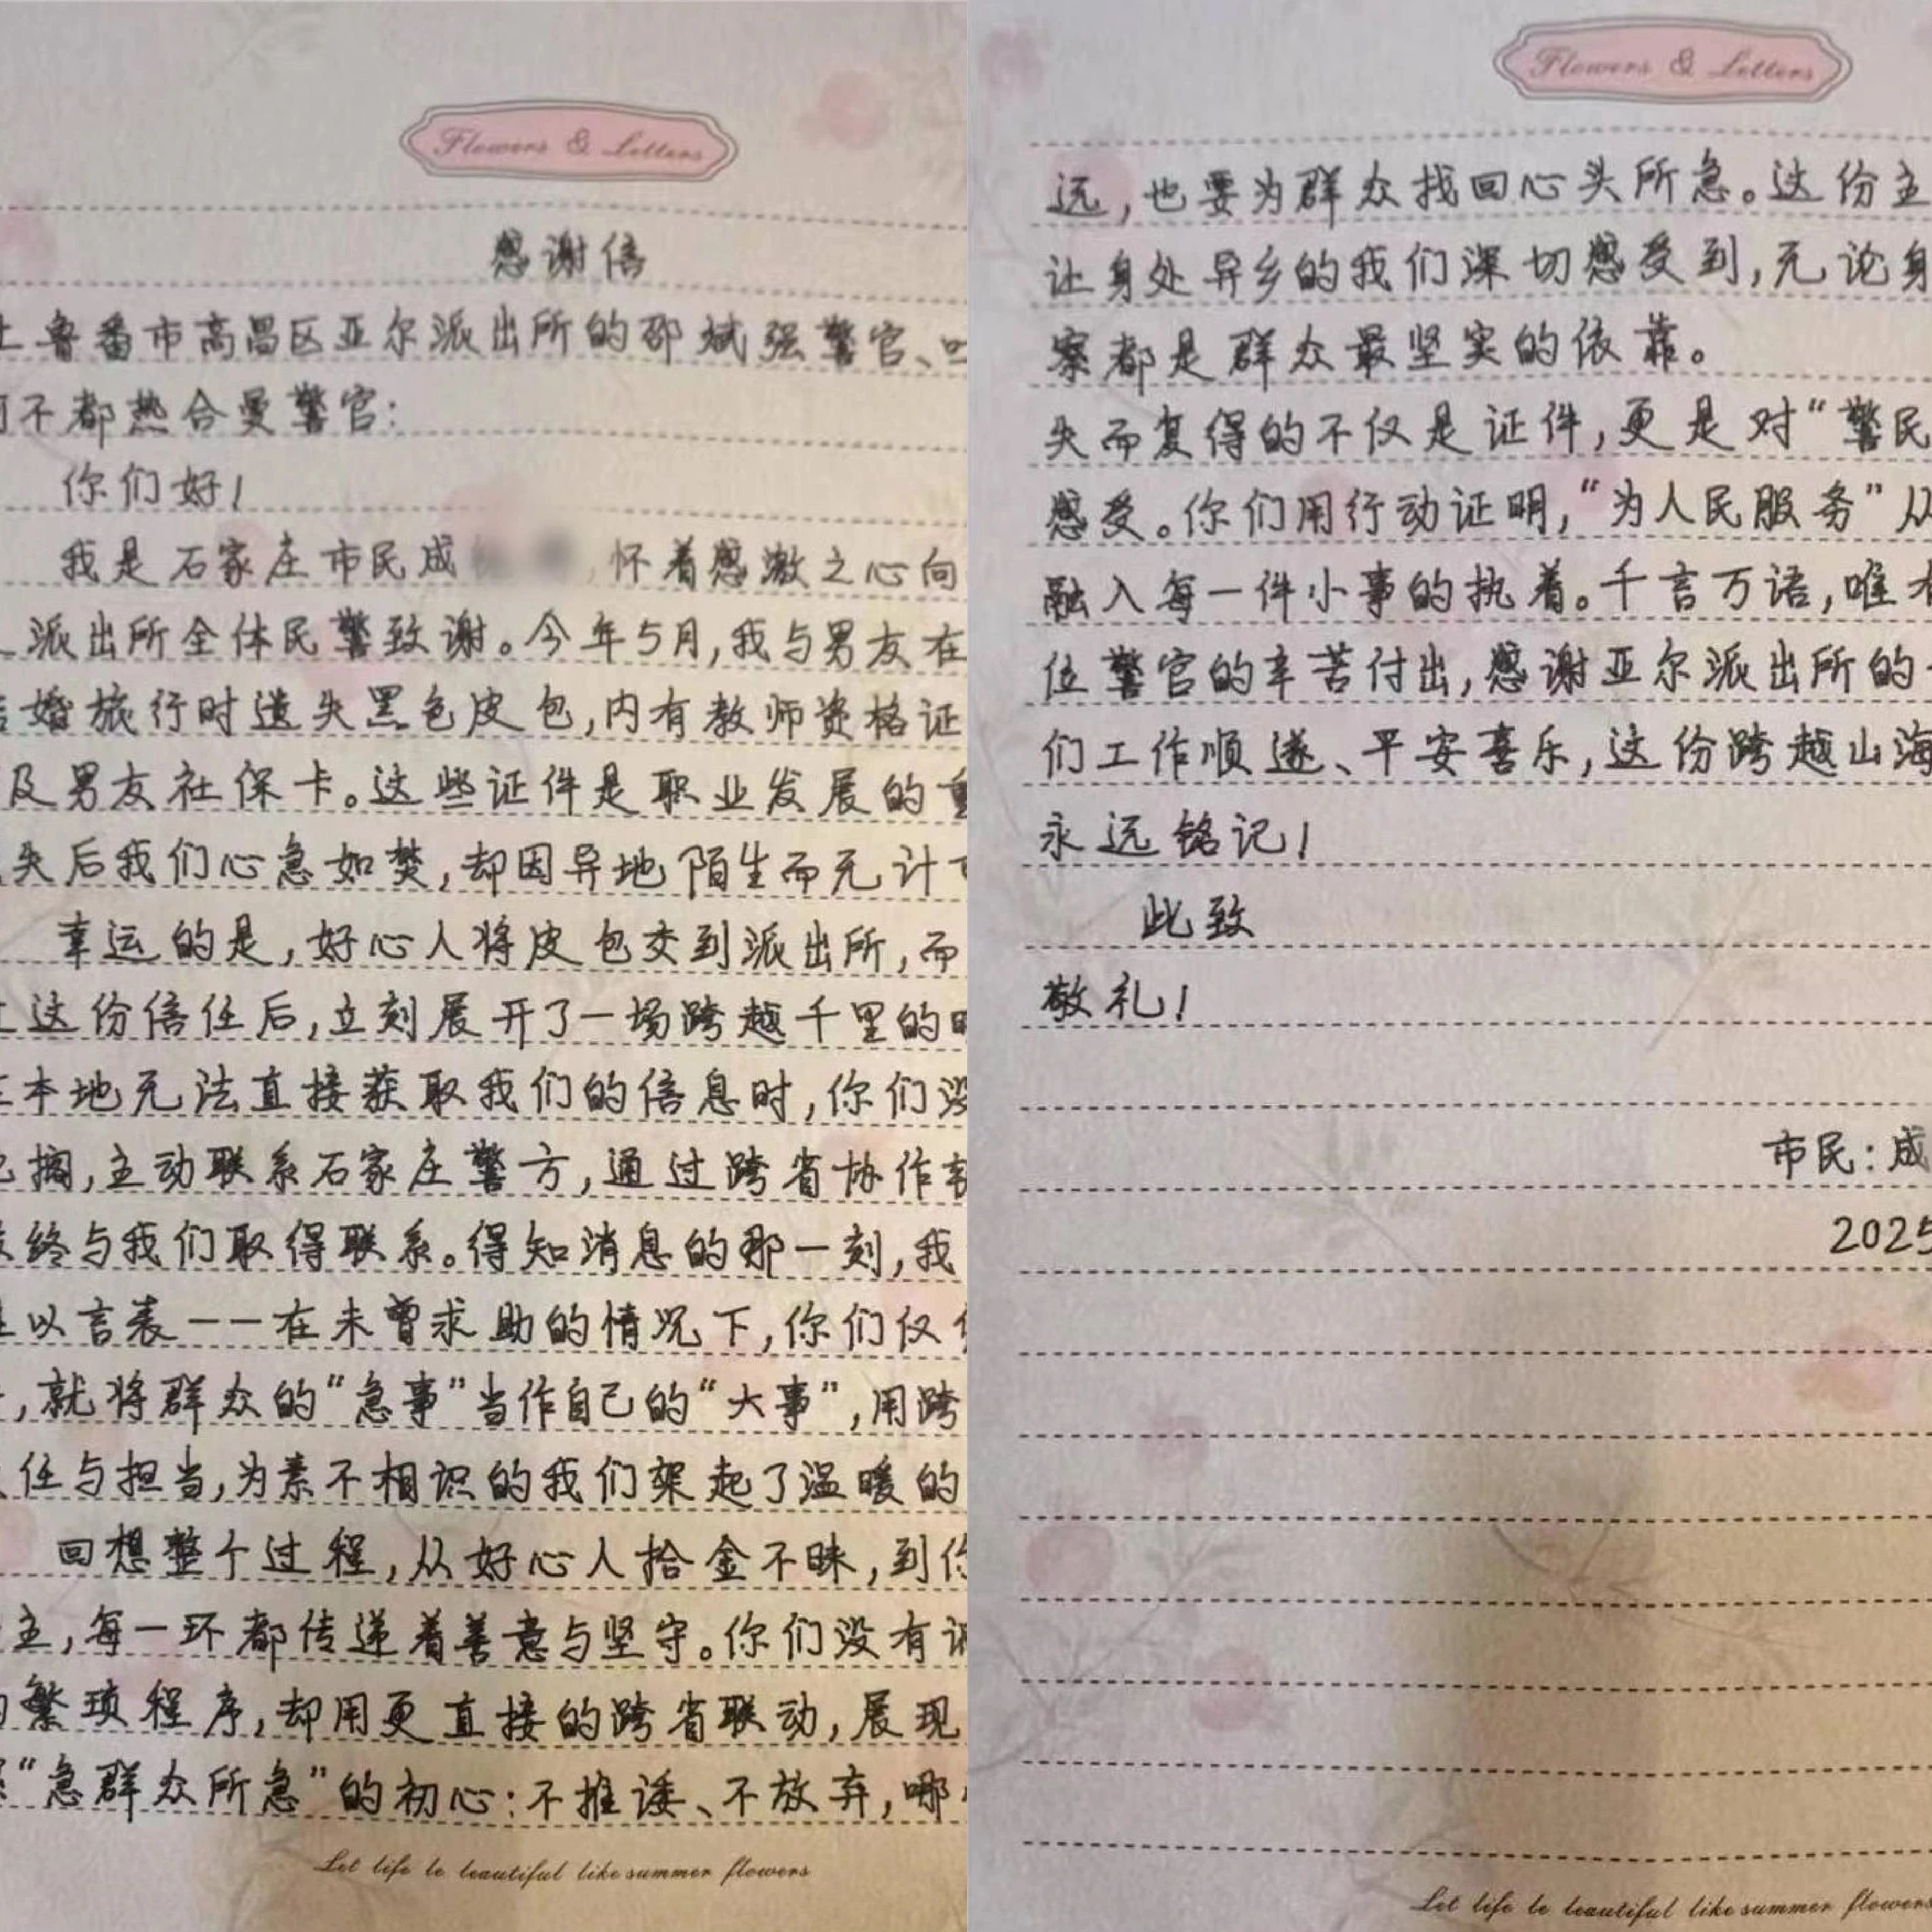 Flowers & Letters
感谢信
鲁番市高昌区亚尔派出所的邵斌强警官、
不都热合曼警官：
你们好！
我是石家庄市民成 ，怀着感激之心向
派出所全体民警致谢。今年5月，我与男友在
婚旅行时遗失黑色皮包，内有教师资格证
及男友社保卡。这些证件是职业发展的
失后我们心急如焚，却因异地陌生而无计
幸运的是，好心人将皮包交到派出所，而
这份信任后，立刻展开了一场跨越千里的
本地无法直接获取我们的信息时，你们没
搁，主动联系石家庄警方，通过跨省协作
终与我们取得联系。得知消息的那一刻，我
以言表——在未曾求助的情况下，你们仅
，就将群众的“急事”当作自己的“大事”，用跨
任与担当，为素不相识的我们架起了温暖的
回想整个过程，从好心人拾金不昧，到你
主，每一环都传递着善意与坚守。你们没有
繁琐程序，却用更直接的跨省联动，展现
“急群众所急”的初心：不推诿、不放弃，哪
Let life be beautiful like summer flowers
Flowers & Letters
远，也要为群众找回心头所急。这份主
让身处异乡的我们深切感受到，无论身
察都是群众最坚实的依靠。
失而复得的不仅是证件，更是对“警民
感受。你们用行动证明，“为人民服务”从
融入每一件小事的执着。千言万语，唯有
位警官的辛苦付出，感谢亚尔派出所的
们工作顺遂、平安喜乐，这份跨越山海
永远铭记！
此致
敬礼！
市民：成
2025
Let life be beautiful like summer flowers